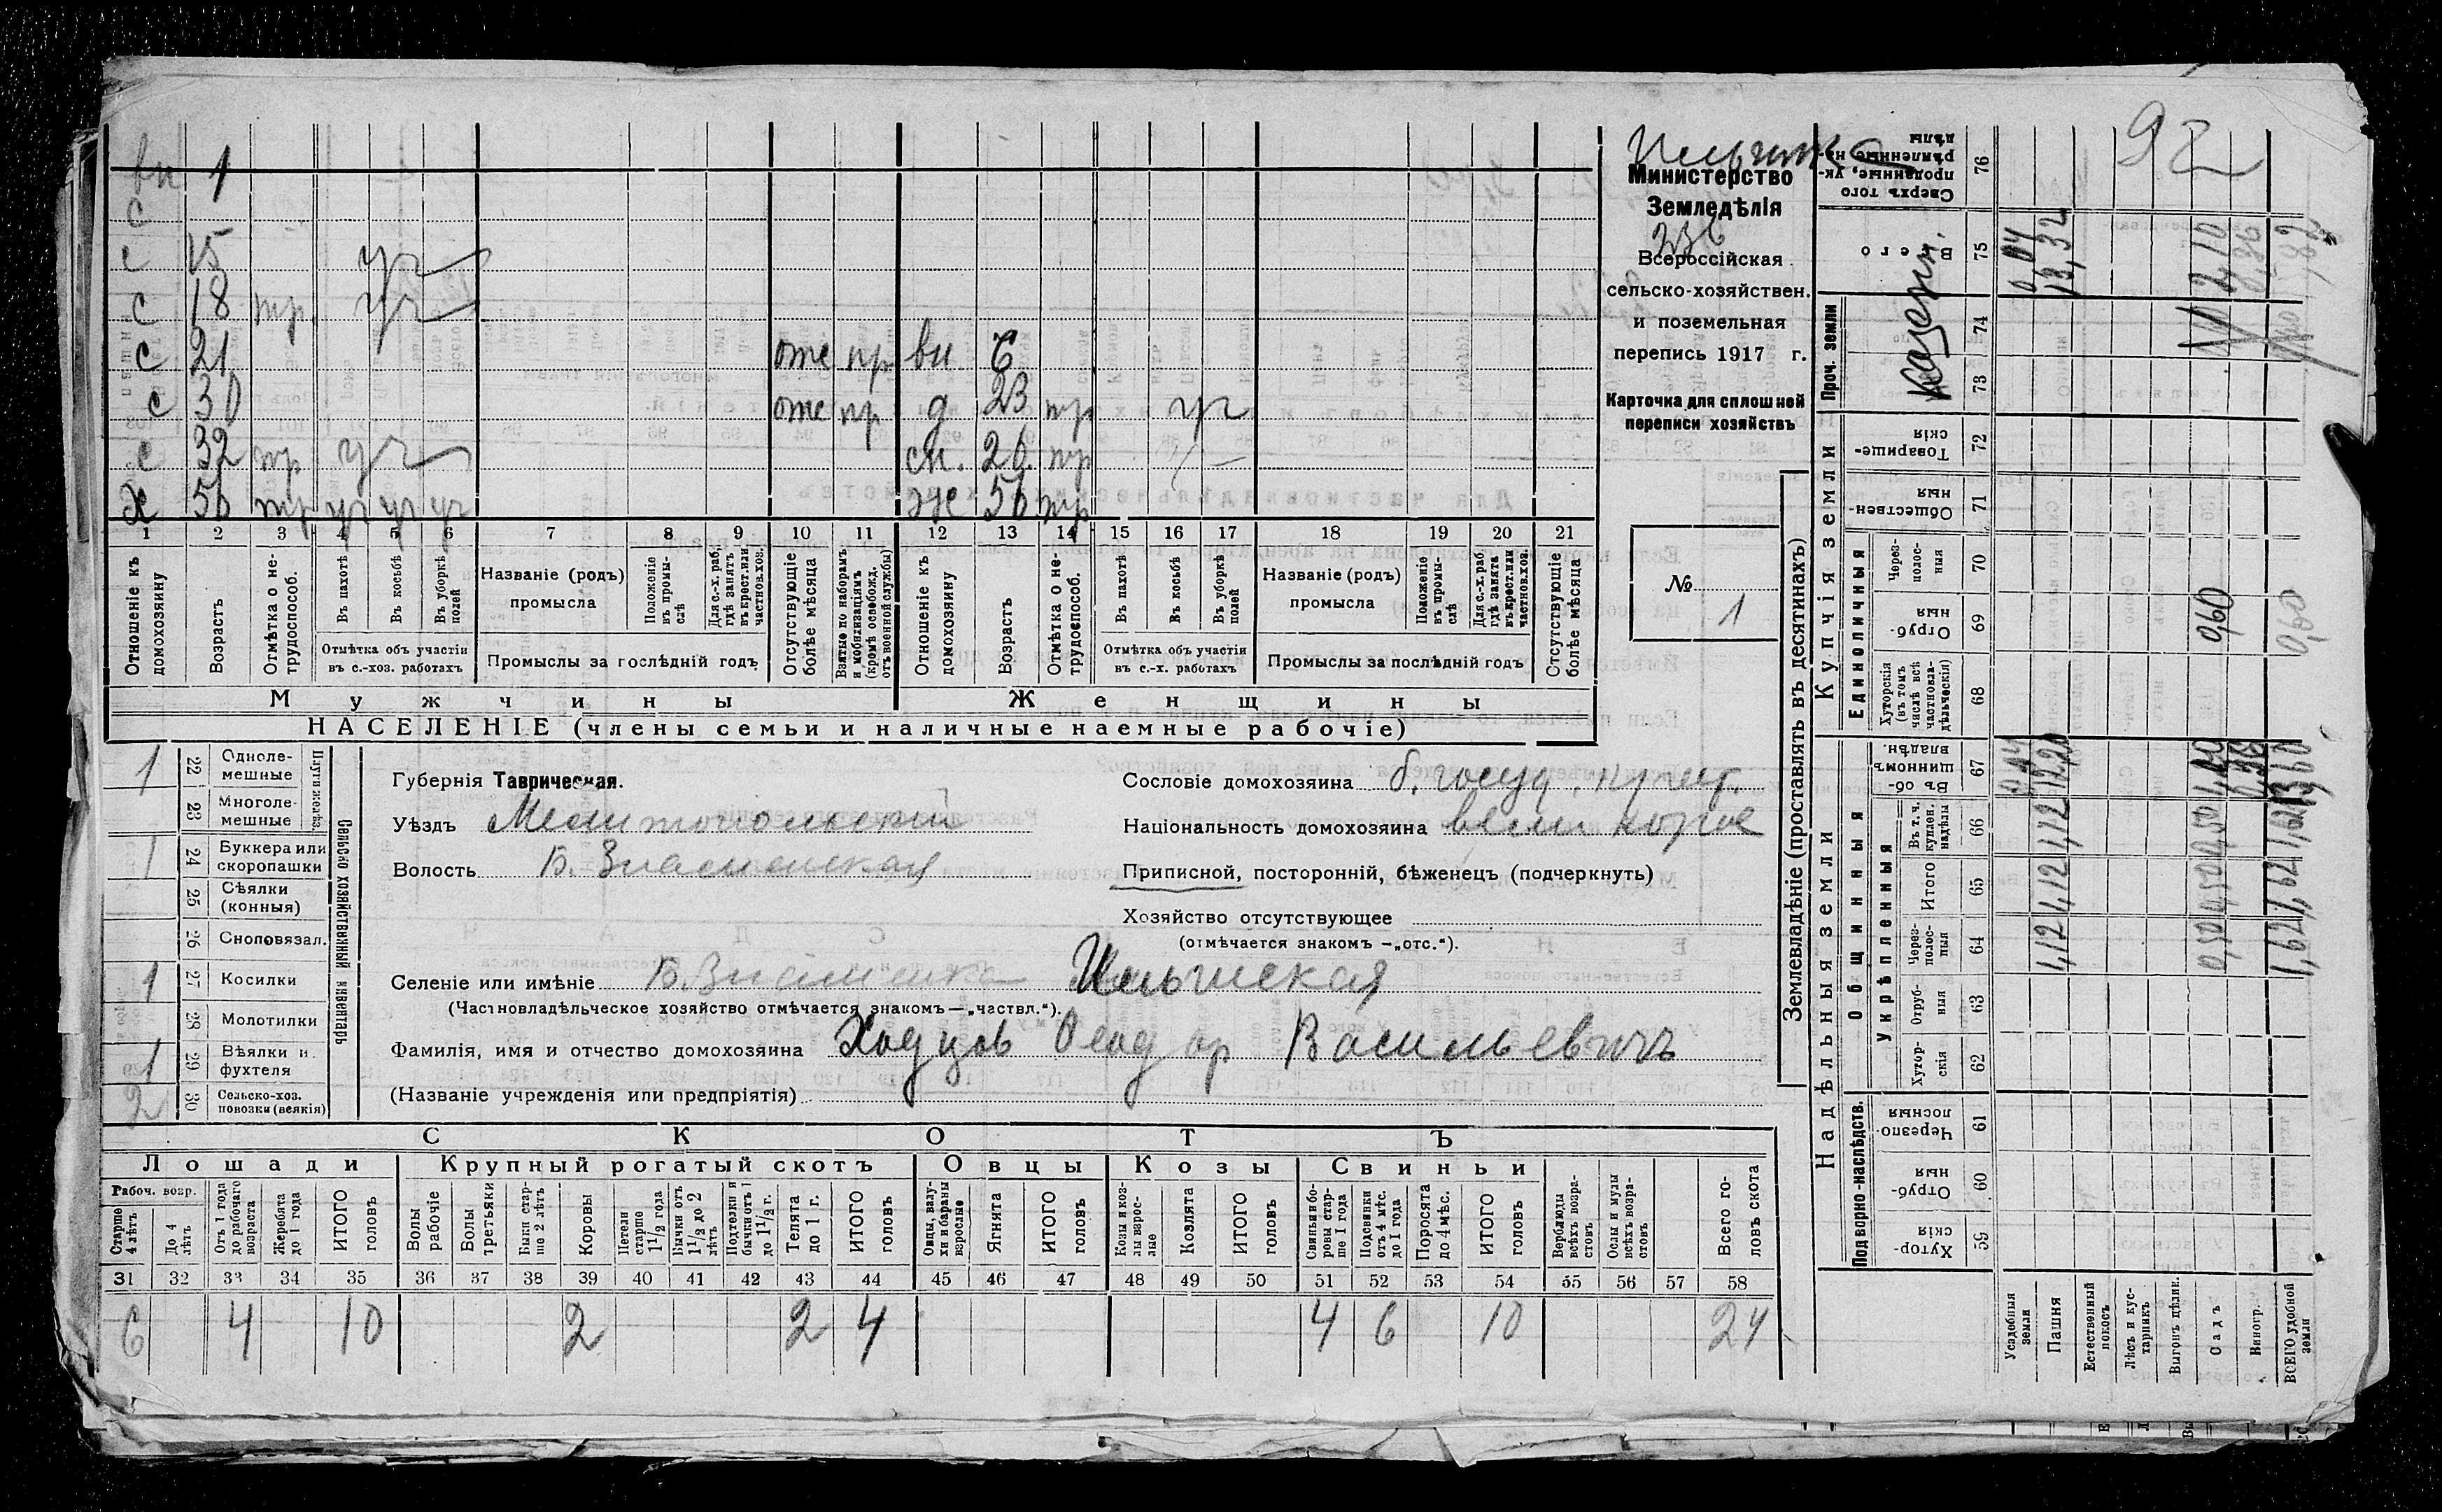 92
Министерство
Земледѣлія
236
Всероссійская
сельско-хозяйствен.
и поземельная
перепись 1917 г.
Карточка для сплошной
переписи хозяйствъ
№
1
вн 1
с
с 15 уч
с 18 пр. уч
с 21 отс пр вн 6
с 30 отс пр д 23 пр уч
с 32 пр уч сн. 26 пр
х 56 пр уч уч уч же 56 пр
1 2 3 4 5 6 7 8 9 10 11 12 13 14 15 16 17 18 19 20 21
Отношеніе къ домохозяину
Возрастъ
Отмѣтка о не-трудоспособ.
Въ пахотѣ
Въ косьбѣ
Въ уборкѣ полей
Отмѣтка объ участіи въ с.-хоз. работахъ
Названіе (родъ) промысла
Положеніе въ промы-слѣ
Для с.-х. раб., гдѣ занятъ въ крест. или частнов. хоз.
Промыслы за послѣдній годъ
Отсутствующіе болѣе мѣсяца
Взятые по наборамъ и мобилизаціямъ (кромѣ освобожд. отъ военной службы)
Отношеніе къ домохозяину
Возрастъ
Отмѣтка о не-трудоспособ.
Въ пахотѣ
Въ косьбѣ
Въ уборкѣ полей
Отмѣтка объ участіи въ с.-х. работахъ
Названіе (родъ) промысла
Положеніе въ промы-слѣ
Для с.-х. раб. гдѣ занята въ крест. или частнов. хоз.
Промыслы за послѣдній годъ
Отсутствующіе болѣе мѣсяца
Мужчины Женщины
НАСЕЛЕНІЕ (члены семьи и наличные наемные рабочіе)
Сельско хозяйственный инвентарь
Плуги желѣз.
1 22 Одноле-мешные
23 Многоле-мешные
1 24 Буккера или скоропашки
25 Сѣялки (конныя)
26 Сноповязал.
1 27 Косилки
28 Молотилки
1 29 Вѣялки и фухтеля
2 30 Сельско-хоз. повозки (всякія)
Губернія Таврическая.
Уѣздъ Мелитопольскій
Волость Б. Знаменская
Сословіе домохозяина б. госуд.
Національность домохозяина
Приписной, посторонній, бѣженецъ (подчеркнуть)
Хозяйство отсутствующее
(отмѣчается знакомъ —„отс.“).
Селеніе или имѣніе Б. Знаменка
(Частновладѣльческое хозяйство отмѣчается знакомъ—„частвл.“).
Фамилія, имя и отчество домохозяина Ходцов Феодор Васильевичъ
(Названіе учрежденія или предпріятія)
СКОТЪ
Лошади Крупный рогатый скотъ Овцы Козы Свиньи
Рабоч. возр.
Старше 4 лѣтъ
До 4 лѣтъ
Отъ 1 года до рабочаго возраста
Жеребята до 1 года
ИТОГО головъ
Волы рабочіе
Волы третьяки
Быки стар-ше 2 лѣтъ
Коровы
Нетели старше 1½ года
Бычки отъ 1½ до 2 лѣтъ
Подтелки и бычки отъ 1 до 1½ г.
Телята до 1 г.
ИТОГО головъ
Овцы, валу-хи и бараны взрослые
Ягнята
ИТОГО головъ
Козы и коз-лы взрос-лые
Козлята
ИТОГО головъ
Свиньи и бо-ровы стар-ше 1 года
Подсвинки отъ 4 мѣс. до 1 года
Поросята до 4 мѣс.
ИТОГО головъ
Верблюды всѣхъ возра-стовъ
Ослы и мулы всѣхъ возра-стовъ
Всего го-ловъ скота
31 32 33 34 35 36 37 38 39 40 41 42 43 44 45 46 47 48 49 50 51 52 53 54 55 56 57 58
6 4 10 2 2 4 4 6 10 24
Землевладѣніе (проставлять въ десятинахъ)
Надѣльныя земли Купчія земли Проч. земли
Подворно-наслѣдств. Общинныя Единоличныя
Укрѣпленныя
Сверхъ того проданные, ук-рѣпленные на-дѣлы 76
Всего 75 0,04 13,32 2,10
74
73
Товарище-скія 72
Обществен-ныя 71
Через-полос-ныя 70
Отруб-ныя 69 0,60 0,60
Хуторскія (въ томъ числѣ всѣ частновла-дѣльческія) 68
Въ об-щинномъ владѣн. 67
Въ т. ч. куплен. надѣлы 66 1,12 0,50 1,62
Итого 65 1,12 0,50 1,62
Через-полос-ныя 64 1,12 0,50 1,62
Отруб-ныя 63
Хутор-скія 62
Черезпо-лосныя 61
Отруб-ныя 60
Хутор-скія 59
Усадебныя земли
Пашня
Естественный покосъ
Лѣсъ и кус-тарникъ
Выгонъ дѣлин.
Садъ
Виногр.
ВСЕГО удобной земли